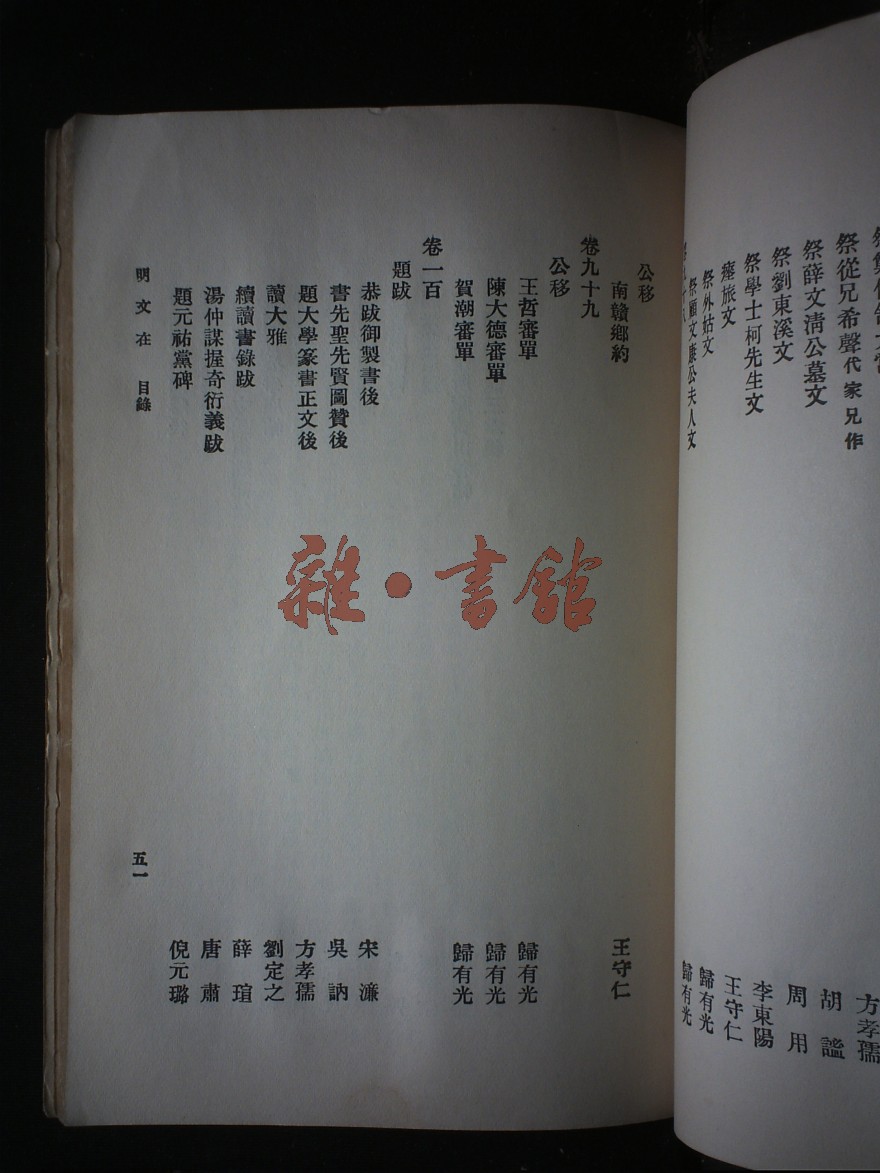 方孝孺
祭從兄希聲代家兄作 胡謐
祭薛文淸公墓文 周用
祭劉東溪文 李東陽
祭學士柯先生文 王守仁
瘞旅文 歸有光
祭外姑文 歸有光
祭顧文康公夫人文
公移
南贛鄉約 王守仁
卷九十九
公移
王哲審單 歸有光
陳大德審單 歸有光
賀潮審單 歸有光
卷一百
題跋
恭跋御製書後 宋濂
書先聖先賢圖贊後 吳訥
題大學篆書正文後 方孝孺
讀大雅 劉定之
續讀書錄跋 薛瑄
湯仲謀握奇衍義跋 唐肅
題元祐黨碑 倪元璐
明文在 目錄
五一
雜·書館